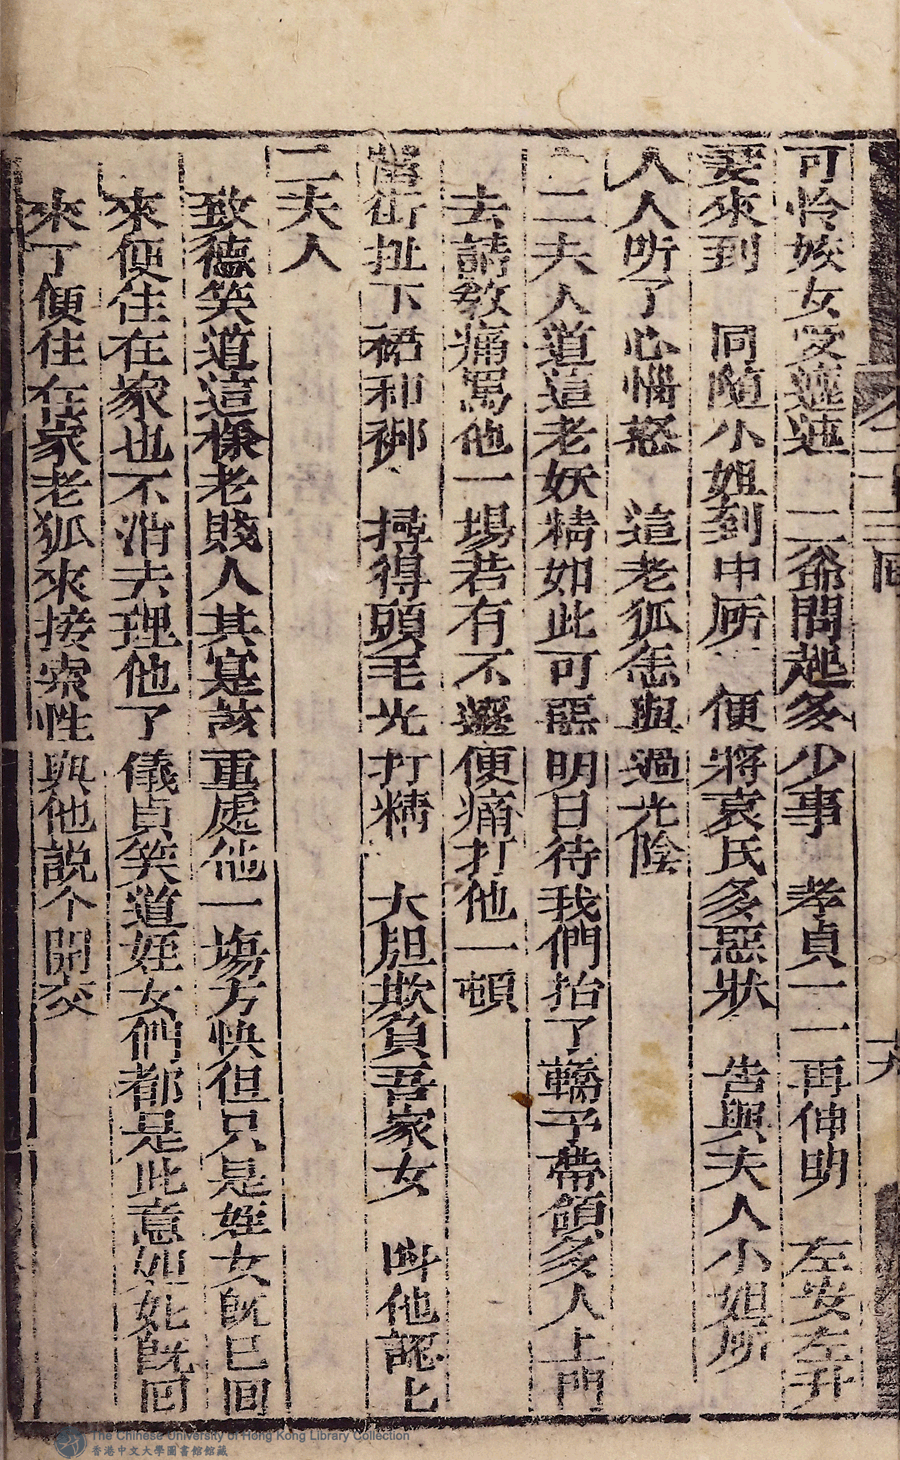 可怜嫉女受迍邅　二爺問起多少事　孝貞一一再伸明　左安左升
要來到　同隨小姐到中所　便將哀氏多惡狀　告與夫人小姐所
人人听了心惱怒　這老狐恁與過光陰
二夫人道這老妖精如此可惡明日待我們抬了轎子帶領多人上門
去請教痛罵他一場若有不遜便痛打他一頓
當街扯下裙和褲　撏得頭毛光打精　大胆欺負吾家女　叫他認
二夫人
致德笑道這樣老賤人其寔該重處他一塲方快但只是姪女既已回
來便住在家也不消去理他了儀貞笑道姪女們都是此意如妣既回
來了便住在家老狐來接索性與他説个開交
二十三回
The Chinese University of Hong Kong Library Collection
香港中文大學圖書館館藏